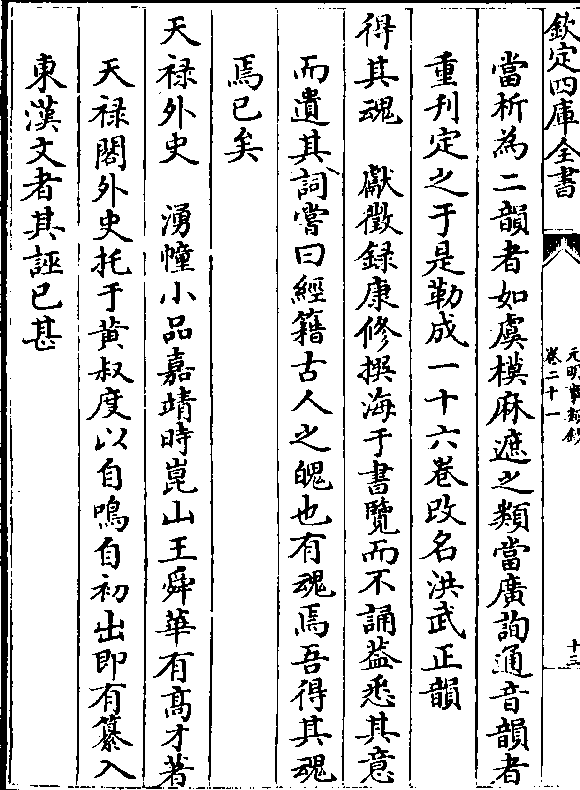 欽定四庫全書
元明事類鈔
卷二十一
十三
當析為二韻者如虞模麻遮之類當廣詢通音韻者
重刋定之于是勒成一十六卷改名洪武正韻
得其魂　獻徵録康修撰海于書覽而不誦葢悉其意
而遺其詞嘗曰經籍古人之魄也有魂焉吾得其魂
焉已矣
天禄外史　湧幢小品嘉靖時崑山王舜華有髙才著
天禄閣外史托于黄叔度以自鳴自初出即有纂入
東漢文者其誣已甚